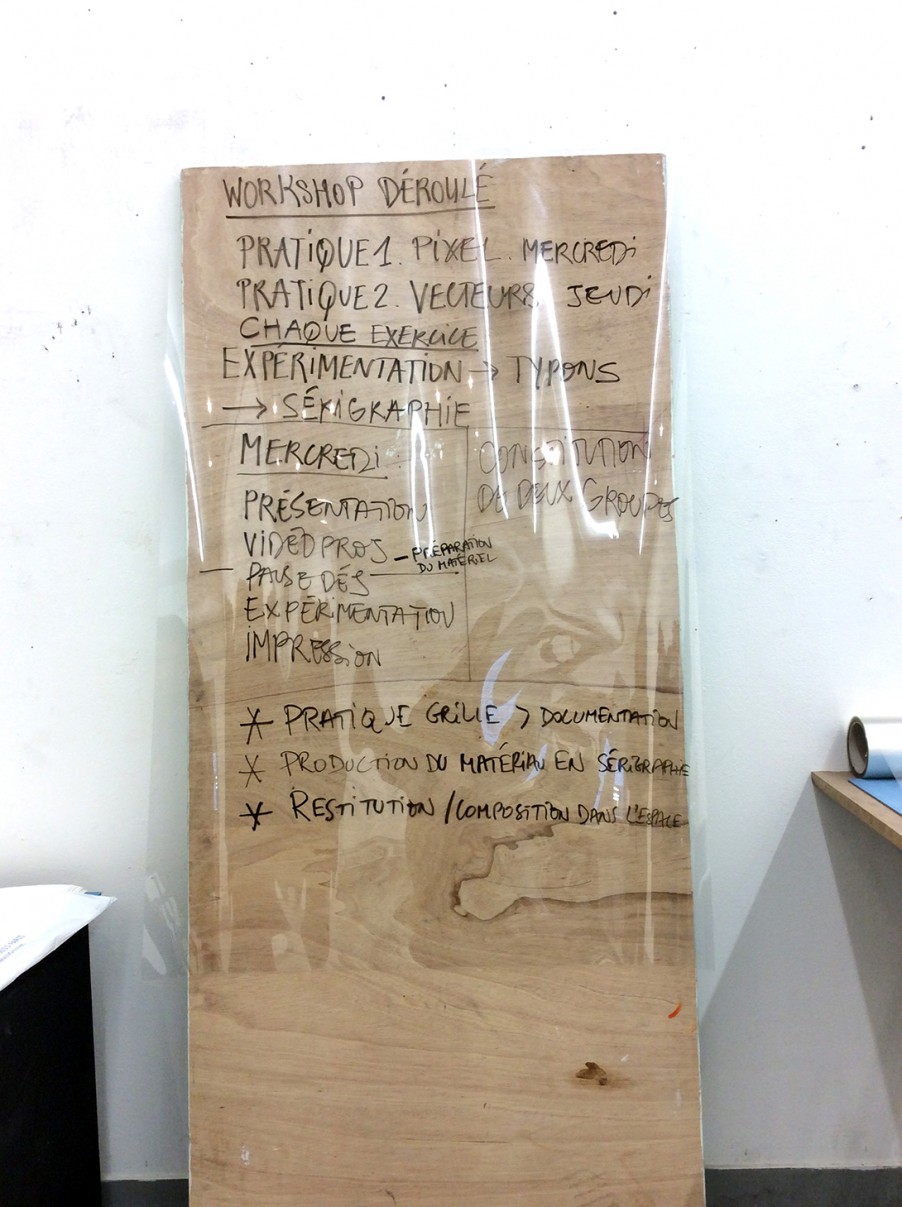 WORKSHOP DÉROULÉ
PRATIQUE 1. PIXEL. MERCREDI
PRATIQUE 2. VECTEURS JEUDI
CHAQUE EXERCICE
EXPÉRIMENTATION → TYPONS
→ SÉRIGRAPHIE
MERCREDI
PRÉSENTATION
VIDÉOPROJ – PRÉPARATION
DU MATÉRIEL
PAUSE DÉJ
EXPÉRIMENTATION
IMPRESSION
CONSTITUTION
DE DEUX GROUPES
* PRATIQUE GRILLE > DOCUMENTATION
* PRODUCTION DU MATÉRIAU EN SÉRIGRAPHIE
* RESTITUTION / COMPOSITION DANS L'ESPACE